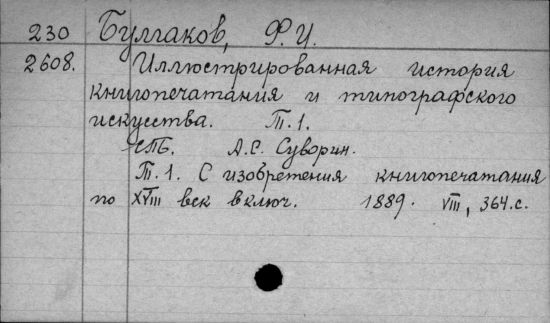 230 Булгаков, Ф. И.
2608. Иллюстрированная история
книгопечатания и типографского
искусства. Т. 1.
СПБ. А.С. Суворин.
Т. 1. С изобретения книгопечатания
по XVIII век включ. 1889. VIII, 364 с.